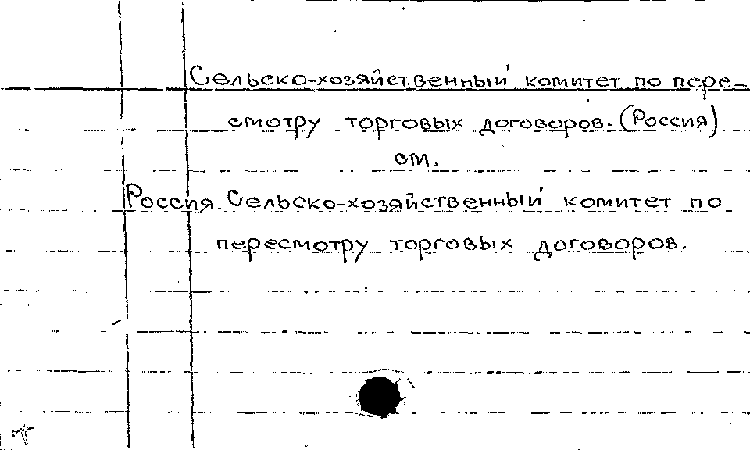 Сельско-хозяйственный комитет по пере-
смотру торговых договоров. (Россия)
см.
Россия. Сельско-хозяйственный комитет по
пересмотру торговых договоров.